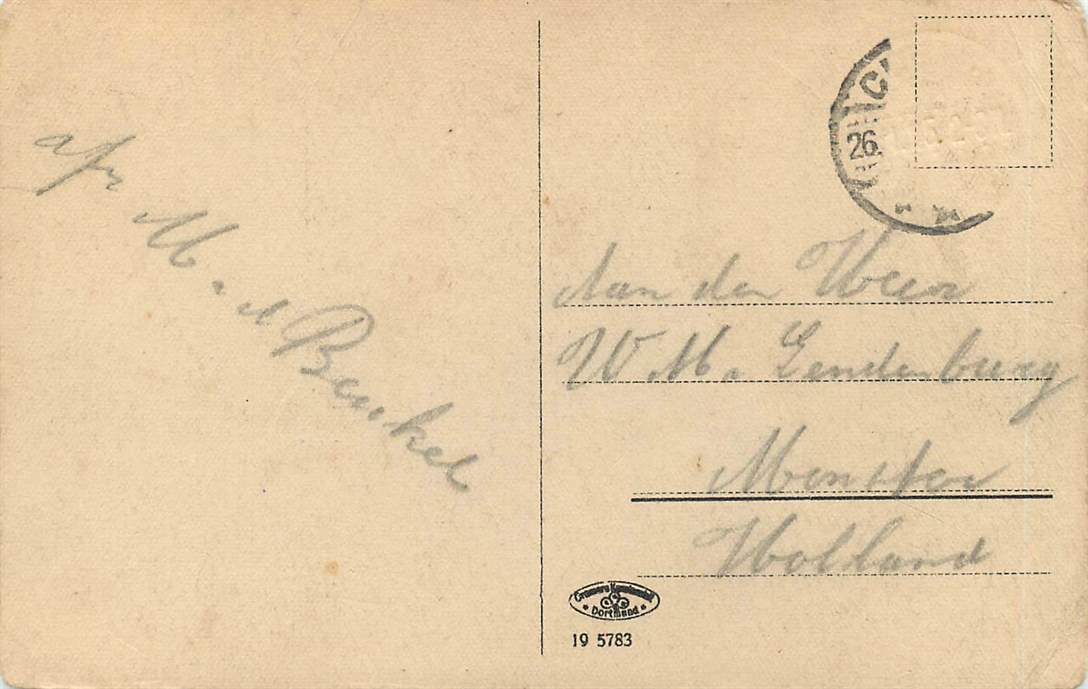 afz
M. v d Beukel
26.
Aan den Heer
W. M. Zendenburg
Monster
Holland
Cramers Kunstanstalt
Dortmund
19 5783